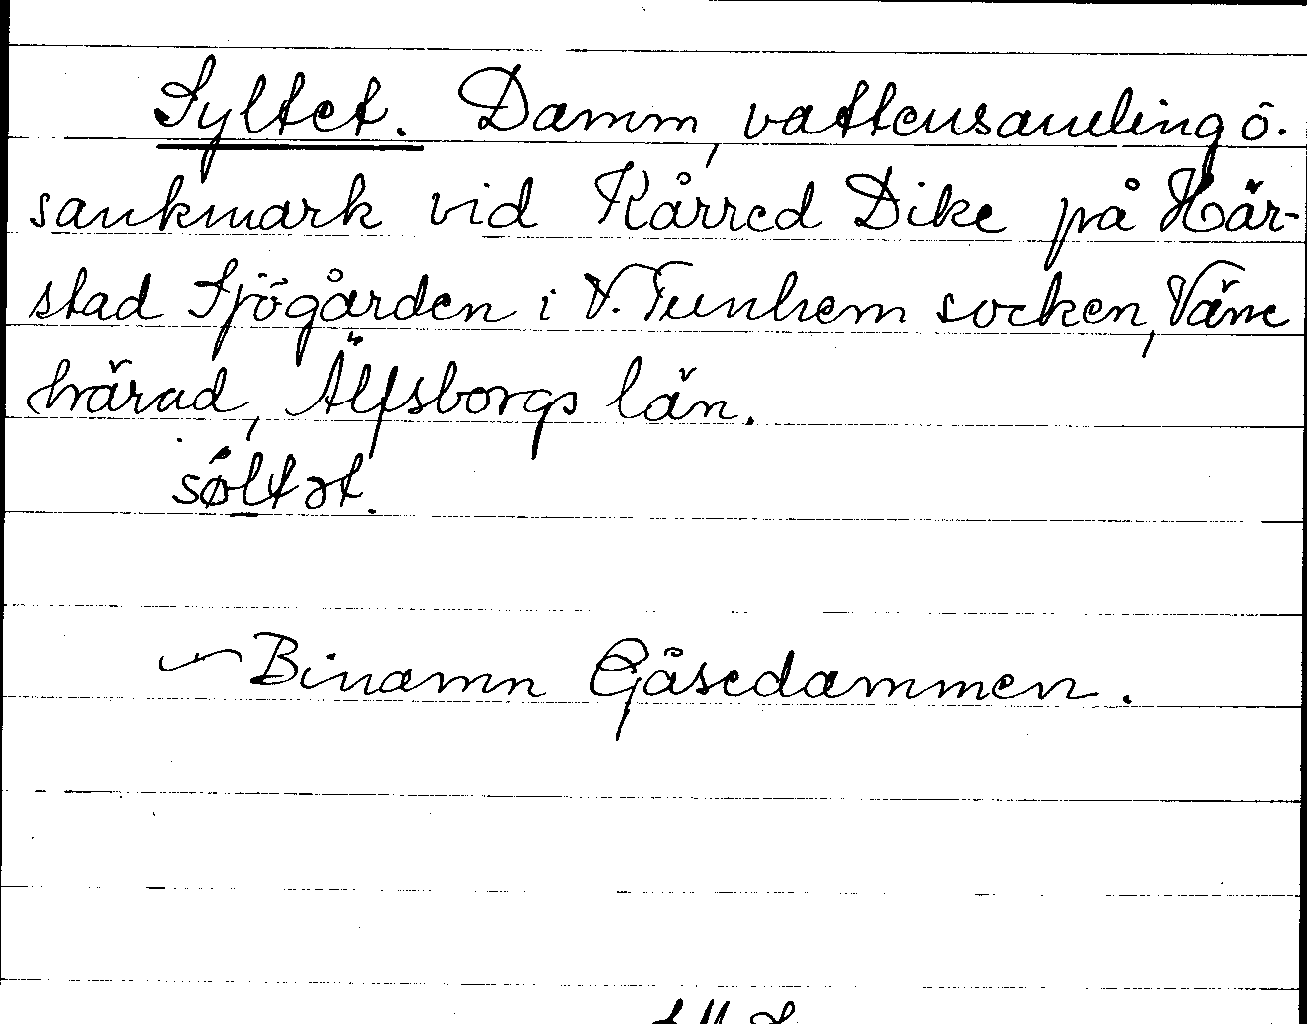 Syltet. Damm, vattensamling o.
sankmark vid Kårred Dike på Här-
stad Sjögården i V. Tunhem socken, Väne
härad, Älfsborgs län.
sø̀ltət.
Binamn Gåsedammen.